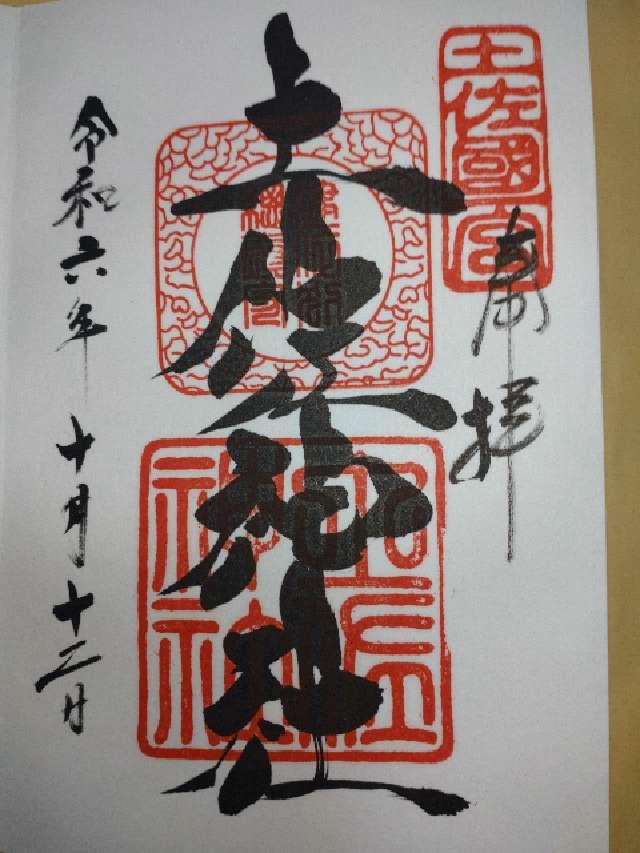 奉拝
土佐國宮
土佐神社
土佐神社
令和六年十月十二日